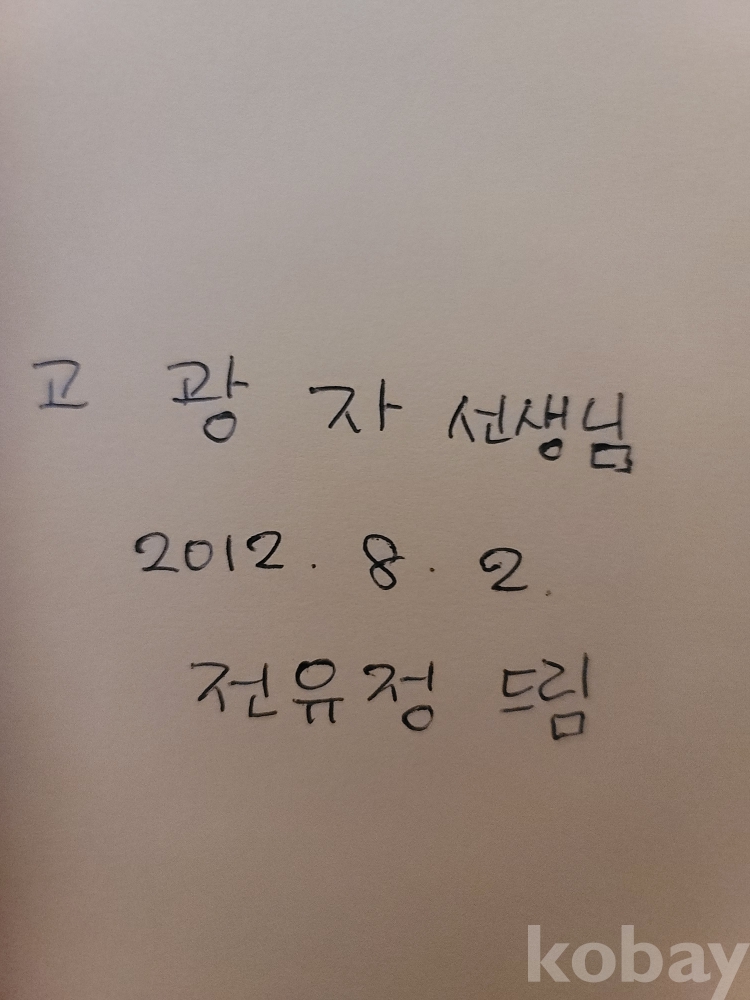 고 광 자 선생님
2012. 8. 2.
전유정 드림
kobay